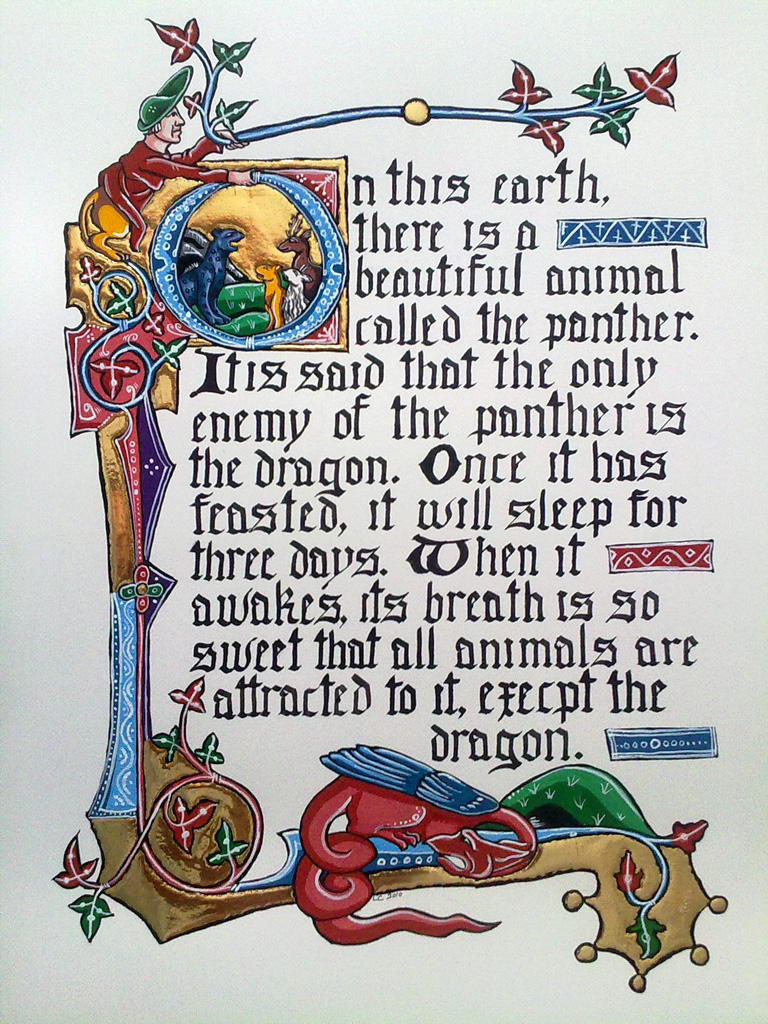 On this earth,
there is a
beautiful animal
called the panther.
It is said that the only
enemy of the panther is
the dragon. Once it has
feasted, it will sleep for
three days. When it
awakes, its breath is so
sweet that all animals are
attracted to it, execpt the
dragon.